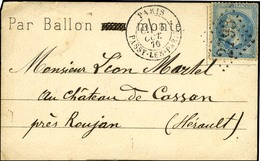 Par Ballon
PARIS
PASSY-LES-P
70
Monsieur Léon Martel
au Château de Cassan
près Roujan
(Hérault)